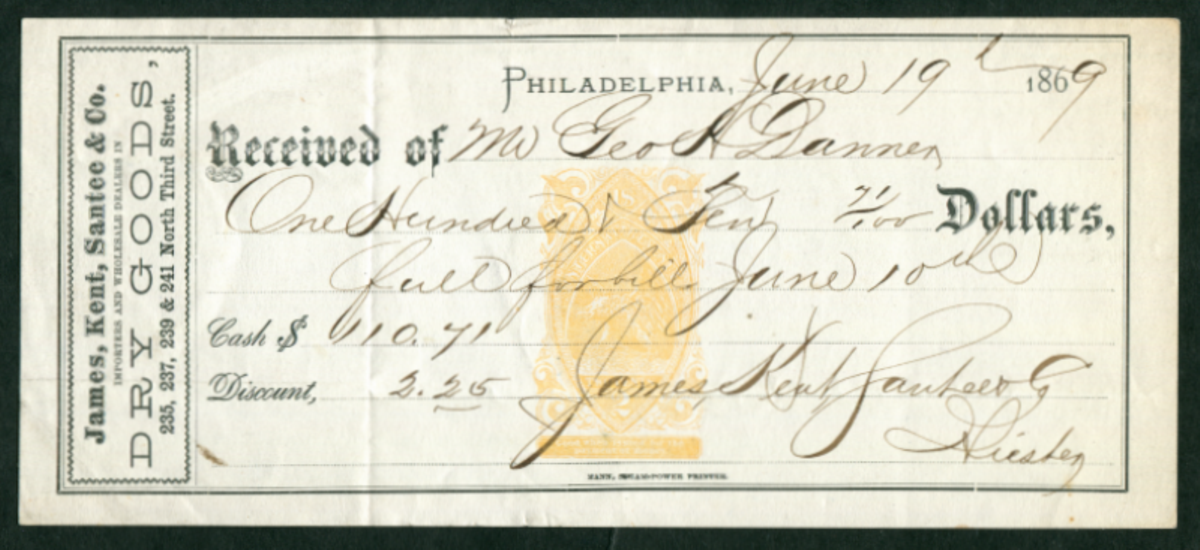 James, Kent, Santee & Co.
IMPORTERS AND WHOLESALE DEALERS IN
DRY GOODS,
235, 237, 239 & 241 North Third Street.
PHILADELPHIA, June 19th 1869
Received of Mr Geo H Danner
One Hundred & Ten 71/100 Dollars,
full for bill June 10th
Cash $ 110.71
Discount, 2.25 James, Kent, Santee & Co
Hiester
MANN, STEAM-POWER PRINTER.